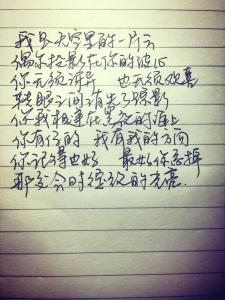 我是天空里的一片云
偶尔投影在你的波心
你无须讶异 也无须欢喜
转眼之间消失了踪影
你我相逢在黑夜的海上
你有你的 我有我的方向
你记得也好 最好你忘掉
那交会时绽放的光亮.